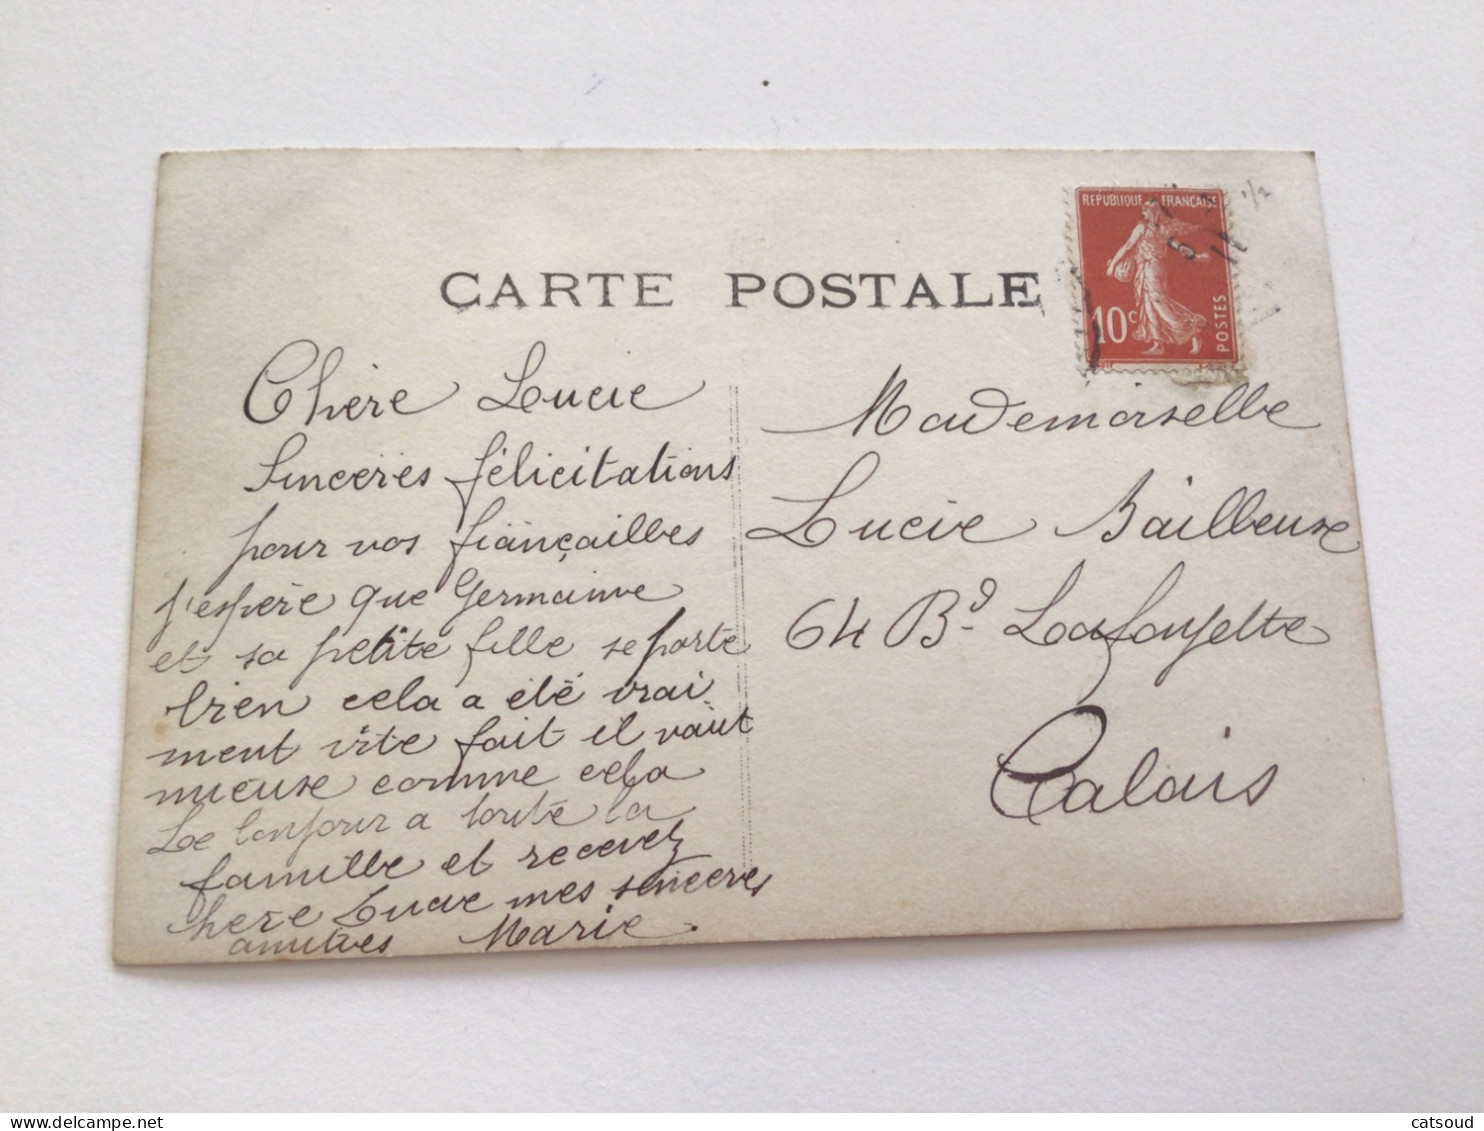 CARTE POSTALE
REPUBLIQUE FRANÇAISE
10c
POSTES
Chère Lucie
Sincères félicitations
pour vos fiançailles
j'espère que Germaine
et sa petite fille se porte
bien cela a été vrai
ment vite fait il vaut
mieuse comme cela
Le bonjour a toute la
famille et recevez
chere Lucie mes sinceres
amitiés Marie.
Mademoiselle
Lucie Bailleuse
64 Bd. Lafayette
Calais
delcampe.net
catsoud